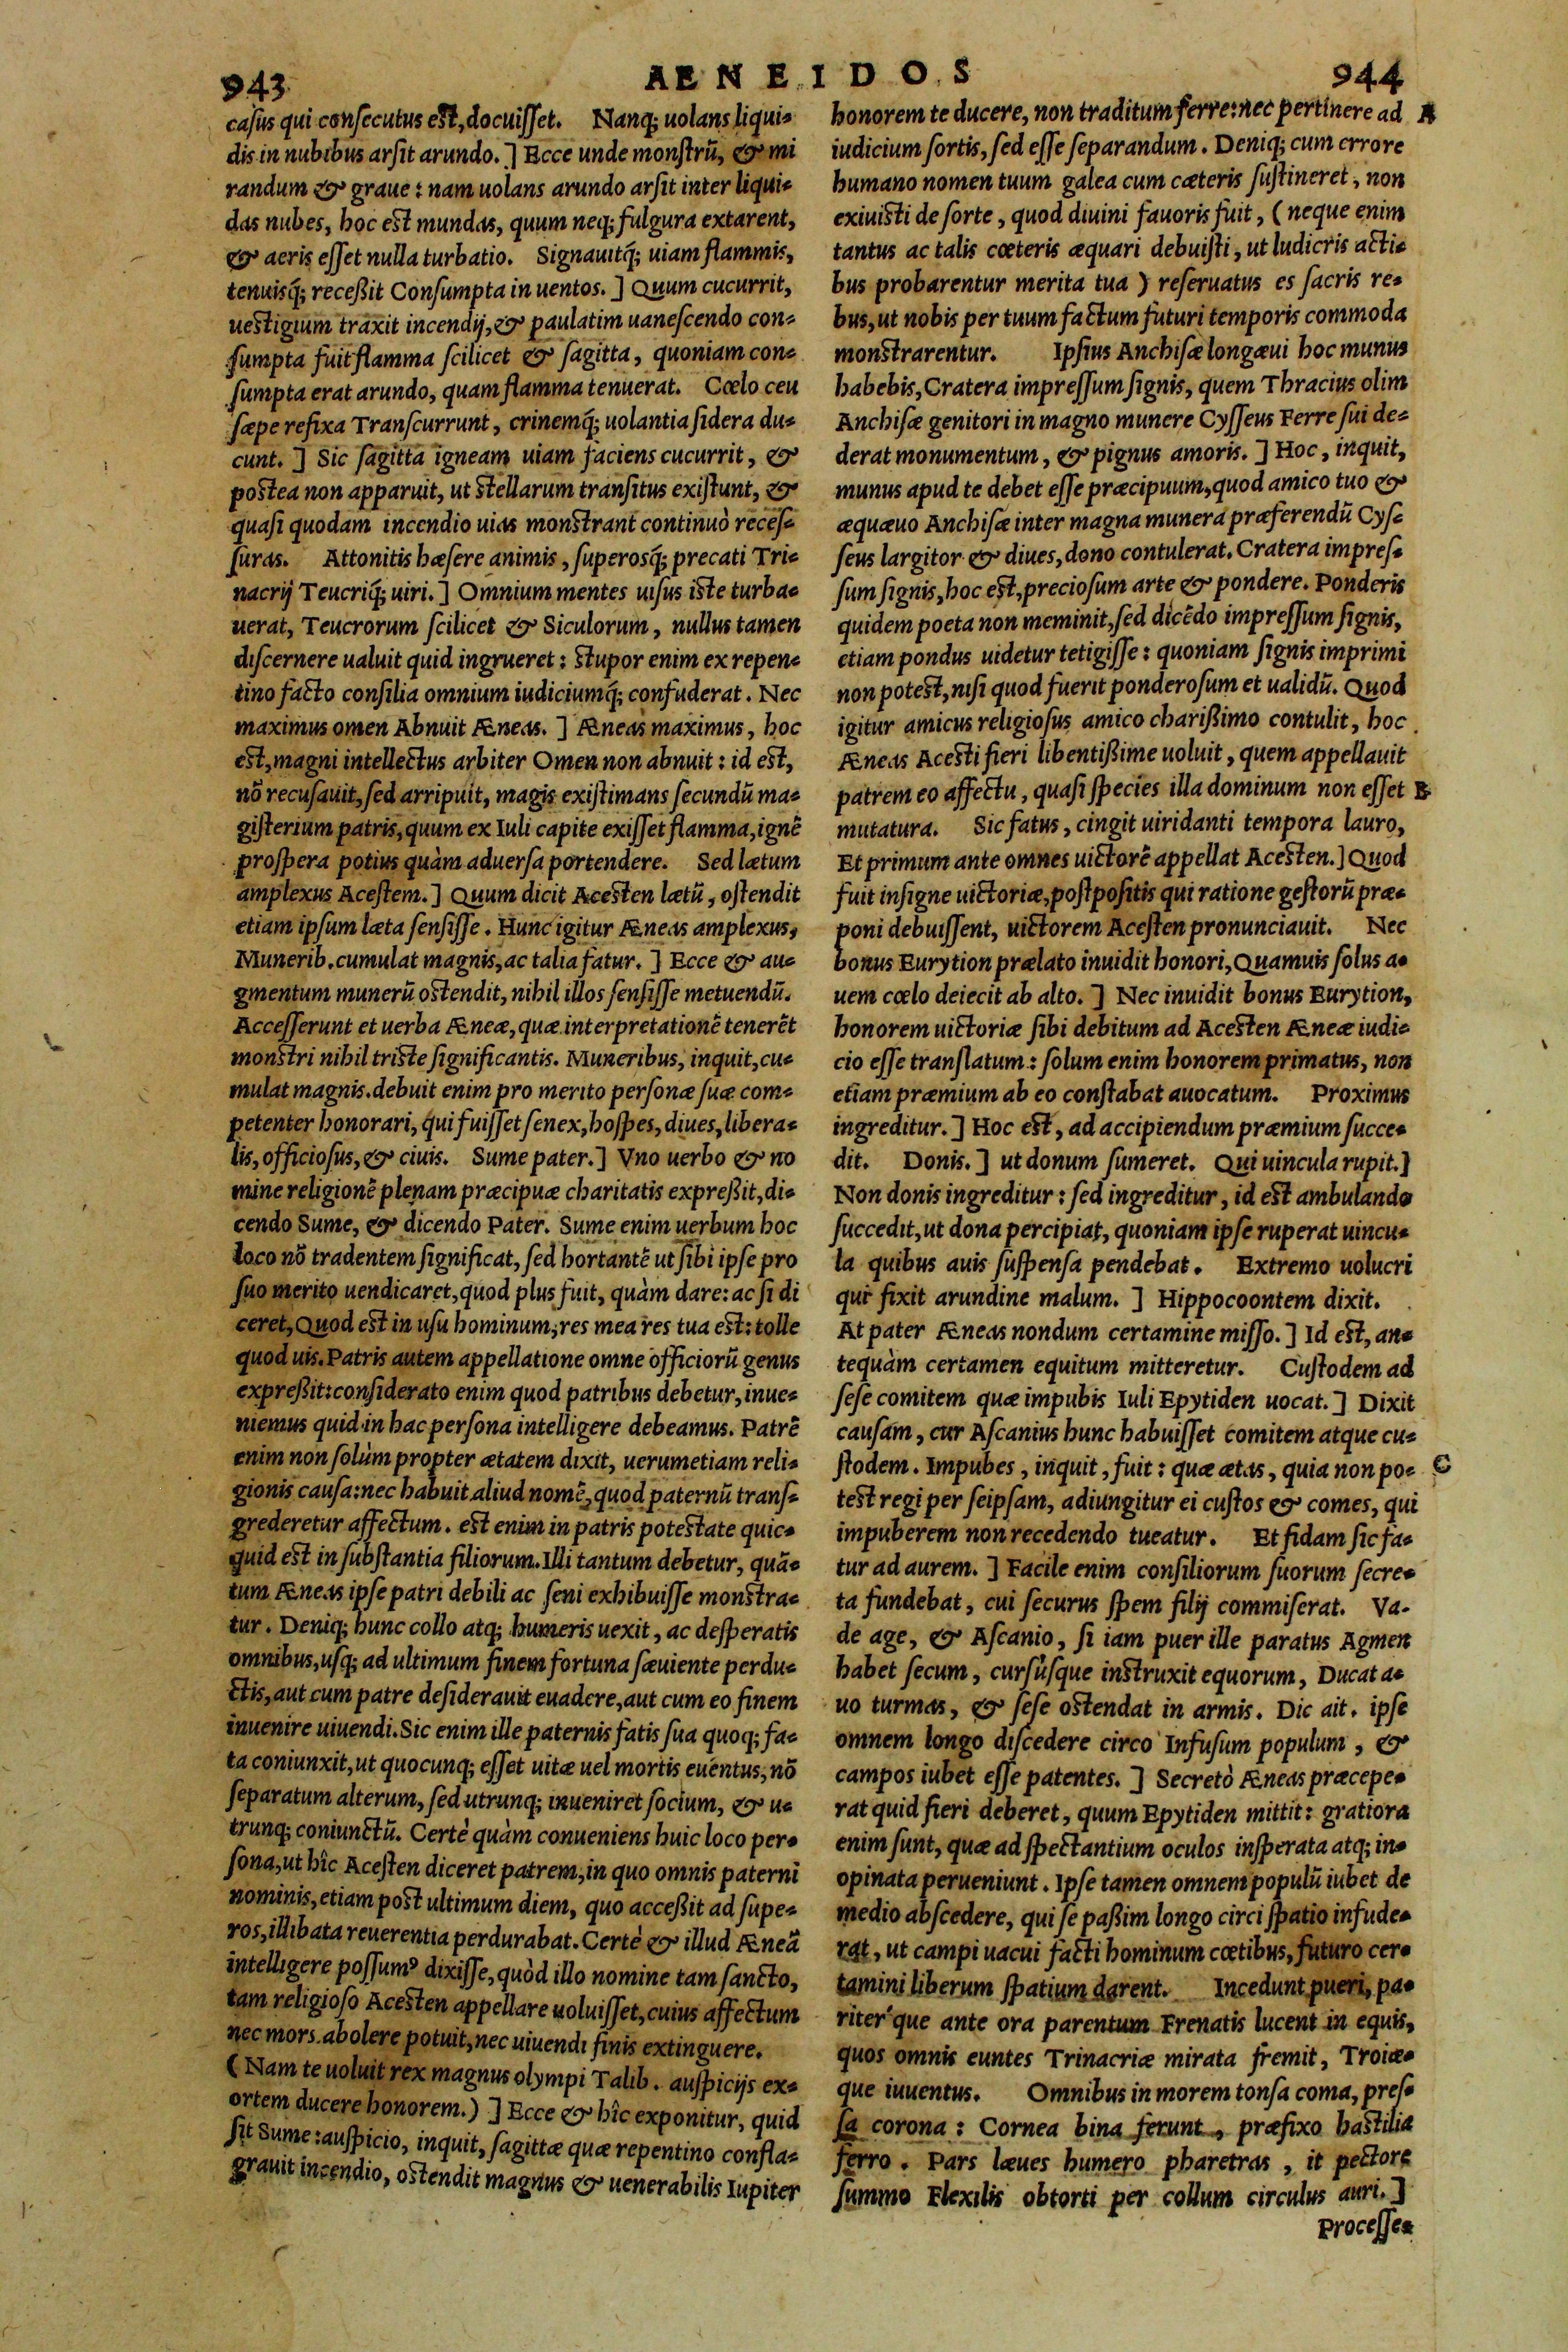 943
AENEIDOS
944
casus qui consecutus est, docuisset. Nanq; uolans liqui-
dis in nubibus arsit arundo.] Ecce unde monstrũ, & mi
randum & graue: nam uolans arundo arsit inter liqui-
das nubes, hoc est mundas, quum neq; fulgura extarent,
& aeris esset nulla turbatio. Signauitq́; uiam flammis,
tenuisq́; receßit Consumpta in uentos.] Quum cucurrit,
uestigium traxit incendij, & paulatim uanescendo con-
sumpta fuit flamma scilicet & sagitta, quoniam con-
sumpta erat arundo, quam flamma tenuerat. Cœlo ceu
sæpe refixa Transcurrunt, crinemq́; uolantia sidera du-
cunt.] Sic sagitta igneam uiam faciens cucurrit, &
postea non apparuit, ut stellarum transitus existunt, &
quasi quodam incendio uias monstrant continuò reces-
suras. Attonitis hæsere animis, superosq́; precati Tri-
nacrij Teucriq́; uiri.] Omnium mentes uisus iste turba-
uerat, Teucrorum scilicet & Siculorum, nullus tamen
discernere ualuit quid ingrueret: stupor enim ex repen-
tino facto consilia omnium iudiciumq́; confuderat. Nec
maximus omen Abnuit Æneas.] Æneas maximus, hoc
est, magni intellectus arbiter Omen non abnuit: id est,
nõ recusauit, sed arripuit, magis existimans secundũ ma-
gisterium patris, quum ex Iuli capite exisset flamma, ignẽ
prospera potius quàm aduersa portendere. Sed lætum
amplexus Acestem.] Quum dicit Acesten lætũ, ostendit
etiam ipsum læta sensisse. Hunc igitur Æneas amplexus,
Munerib. cumulat magnis, ac talia fatur.] Ecce & au-
gmentum munerũ ostendit, nihil illos sensisse metuendũ.
Accesserunt et uerba Æneæ, quæ interpretationẽ tenerẽt
monstri nihil triste significantis. Muneribus, inquit, cu-
mulat magnis. debuit enim pro merito personæ suæ com-
petenter honorari, qui fuisset senex, hospes, diues, libera-
lis, officiosus, & ciuis. Sume pater.] Vno uerbo & no
mine religionẽ plenam præcipuæ charitatis expreßit, di-
cendo Sume, & dicendo Pater. Sume enim uerbum hoc
loco nõ tradentem significat, sed hortantẽ ut sibi ipse pro
suo merito uendicaret, quod plus fuit, quàm dare: ac si di
ceret, Quod est in usu hominum, res mea res tua est: tolle
quod uis. Patris autem appellatione omne officiorũ genus
expreßit: considerato enim quod patribus debetur, inue-
niemus quid in hac persona intelligere debeamus. Patrẽ
enim non solùm propter ætatem dixit, uerumetiam reli-
gionis causa: nec habuit aliud nomẽ, quod paternũ trans-
grederetur affectum. est enim in patris potestate quic-
quid est in substantia filiorum. Illi tantum debetur, quã-
tum Æneas ipse patri debili ac seni exhibuisse monstra-
tur. Deniq; hunc collo atq; humeris uexit, ac desperatis
omnibus, usq; ad ultimum finem fortuna sæuiente perdu-
ctis, aut cum patre desiderauit euadere, aut cum eo finem
inuenire uiuendi. Sic enim ille paternis fatis sua quoq; fa-
ta coniunxit, ut quocunq; esset uitæ uel mortis euentus, nõ
separatum alterum, sed utrunq; inueniret socium, & u-
trunq; coniunctũ. Certè quàm conueniens huic loco per-
sona, ut hîc Acesten diceret patrem, in quo omnis paterni
nominis, etiam post ultimum diem, quo acceßit ad supe-
ros, illibata reuerentia perdurabat. Certè & illud Æneã
intelligere possumꝰ dixisse, quòd illo nomine tam sancto,
tam religioso Acesten appellare uoluisset, cuius affectum
nec mors abolere potuit, nec uiuendi finis extinguere.
(Nam te uoluit rex magnus olympi Talib. auspicijs ex-
ortem ducere honorem.)] Ecce & hîc exponitur, quid
sit Sume: auspicio, inquit, sagittæ quæ repentino confla-
grauit incendio, ostendit magnus & uenerabilis Iupiter
honorem te ducere, non traditum ferre: nec pertinere ad A
iudicium sortis, sed esse separandum. Deniq; cum errore
humano nomen tuum galea cum cæteris sustineret, non
exiuisti de sorte, quod diuini fauoris fuit, (neque enim
tantus ac talis cœteris æquari debuisti, ut ludicris acti-
bus probarentur merita tua) reseruatus es sacris re-
bus, ut nobis per tuum factum futuri temporis commoda
monstrarentur. Ipsius Anchisæ longæui hoc munus
habebis, Cratera impressum signis, quem Thracius olim
Anchisæ genitori in magno munere Cysseus Ferre sui de-
derat monumentum, & pignus amoris.] Hoc, inquit,
munus apud te debet esse præcipuum, quod amico tuo &
æquæuo Anchisæ inter magna munera præferendũ Cys-
seus largitor & diues, dono contulerat. Cratera impres-
sum signis, hoc est, preciosum arte & pondere. Ponderis
quidem poeta non meminit, sed dicẽdo impressum signis,
etiam pondus uidetur tetigisse: quoniam signis imprimi
non potest, nisi quod fuerit ponderosum et ualidũ. Quod
igitur amicus religiosus amico charißimo contulit, hoc
Æneas Acesti fieri libentißime uoluit, quem appellauit
patrem eo affectu, quasi species illa dominum non esset B
mutatura. Sic fatus, cingit uiridanti tempora lauro,
Et primum ante omnes uictorẽ appellat Acesten.] Quod
fuit insigne uictoriæ, postpositis qui ratione gestorũ præ-
poni debuissent, uictorem Acesten pronunciauit. Nec
bonus Eurytion prælato inuidit honori, Quamuis solus a-
uem cœlo deiecit ab alto.] Nec inuidit bonus Eurytion,
honorem uictoriæ sibi debitum ad Acesten Æneæ iudi-
cio esse translatum: solum enim honorem primatus, non
etiam præmium ab eo constabat auocatum. Proximus
ingreditur.] Hoc est, ad accipiendum præmium succe-
dit. Donis.] ut donum sumeret. Qui uincula rupit.]
Non donis ingreditur: sed ingreditur, id est ambulando
succedit, ut dona percipiat, quoniam ipse ruperat uincu-
la quibus auis suspensa pendebat. Extremo uolucri
qui fixit arundine malum.] Hippocoontem dixit.
At pater Æneas nondum certamine misso.] Id est, an-
tequàm certamen equitum mitteretur. Custodem ad
sese comitem quæ impubis Iuli Epytiden uocat.] Dixit
causam, cur Ascanius hunc habuisset comitem atque cu-
stodem. Impubes, inquit, fuit: quæ ætas, quia non po- C
test regi per seipsam, adiungitur ei custos & comes, qui
impuberem non recedendo tueatur. Et fidam sic fa-
tur ad aurem.] Facile enim consiliorum suorum secre-
ta fundebat, cui securus spem filij commiserat. Va-
de age, & Ascanio, si iam puer ille paratus Agmen
habet secum, cursùsque instruxit equorum, Ducat a-
uo turmas, & sese ostendat in armis. Dic ait. ipse
omnem longo discedere circo Infusum populum, &
campos iubet esse patentes.] Secretò Æneas præcepe-
rat quid fieri deberet, quum Epytiden mittit: gratiora
enim sunt, quæ ad spectantium oculos insperata atq; in-
opinata perueniunt. Ipse tamen omnem populũ iubet de
medio abscedere, qui se paßim longo circi spatio infude-
rat, ut campi uacui facti hominum cœtibus, futuro cer-
tamini liberum spatium darent. Incedunt pueri, pa-
riter'que ante ora parentum Frenatis lucent in equis,
quos omnis euntes Trinacriæ mirata fremit, Troiæ-
que iuuentus. Omnibus in morem tonsa coma, pres-
sa corona: Cornea bina ferunt, præfixo hastilia
ferro. Pars læues humero pharetras, it pectore
summo Flexilis obtorti per collum circulus auri.]
Processe-